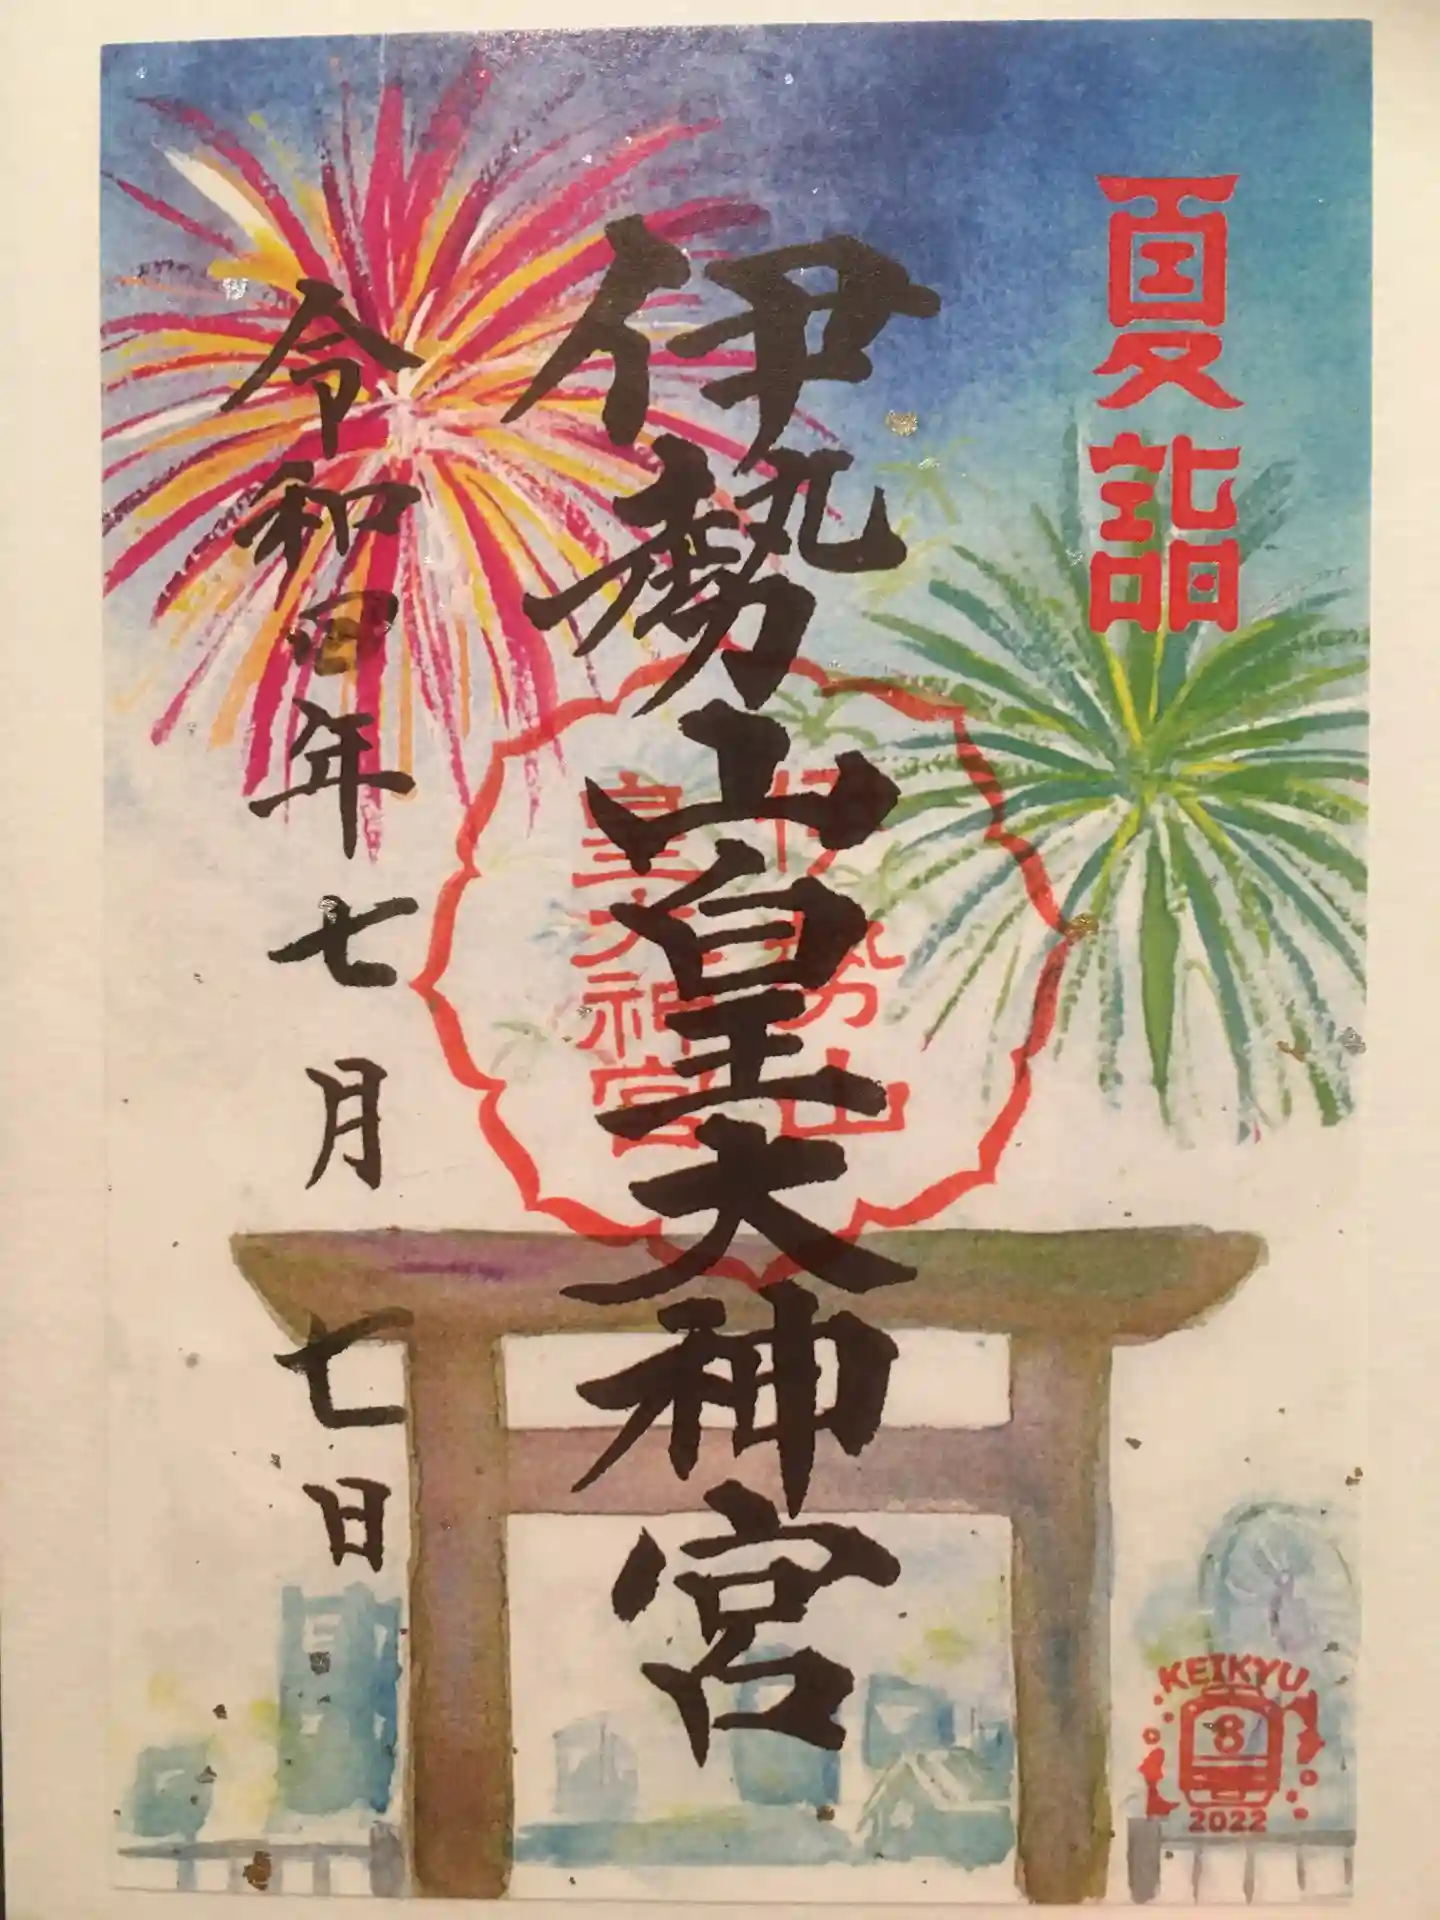 夏詣
伊勢山皇大神宮
伊勢山
皇大神宮
令和四年七月七日
KEIKYU
8
2022